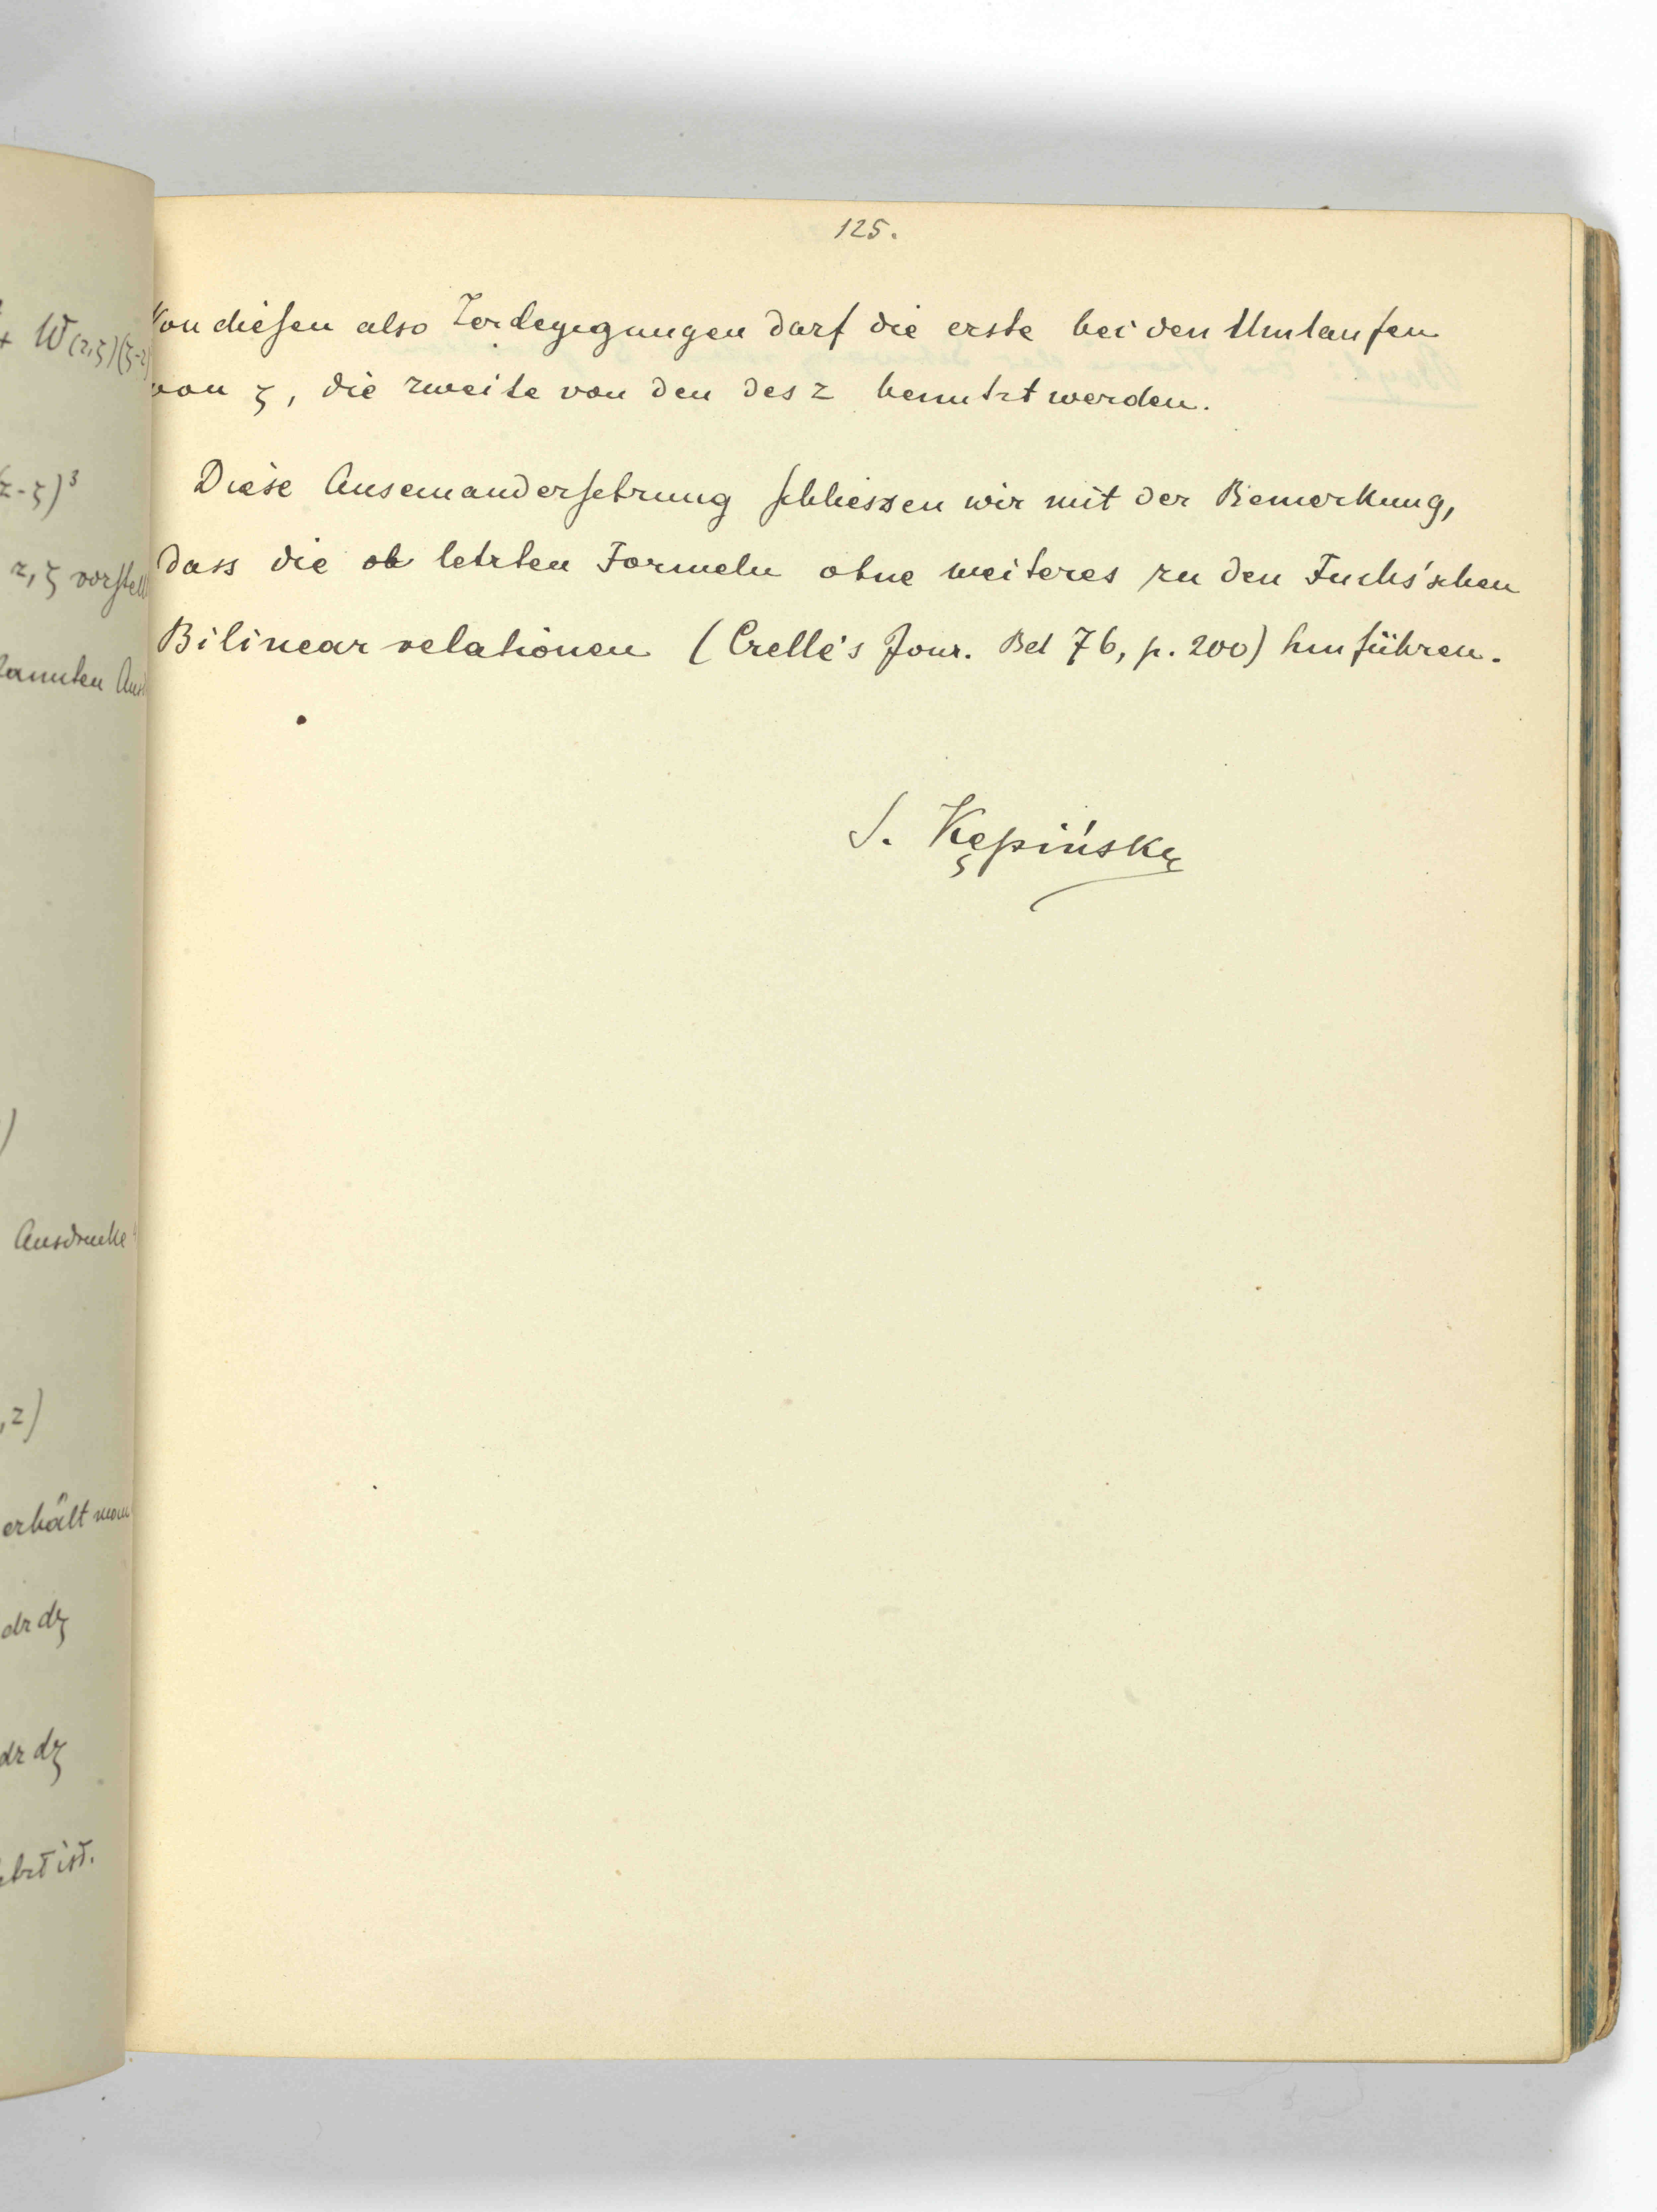 125.
Von diesen also Zerlegungen darf die erste bei den Umlaufen
von ζ, die zweite von den des z benutzt werden.
Diese Auseinandersetzung schliessen wir mit der Bemerkung,
dass die ob letzten Formeln ohne weiteres zu den Fuchs'schen
Bilinearrelationen (Crelle's Jour. Bd 76, p. 200) hinführen.
S. Kępiński
+ W(z,ζ)(ζ-z)
(z-ζ)³
z, ζ vorstell
)
Ausdrucke
,z)
erhält man
dz dζ
dz dζ
ist.